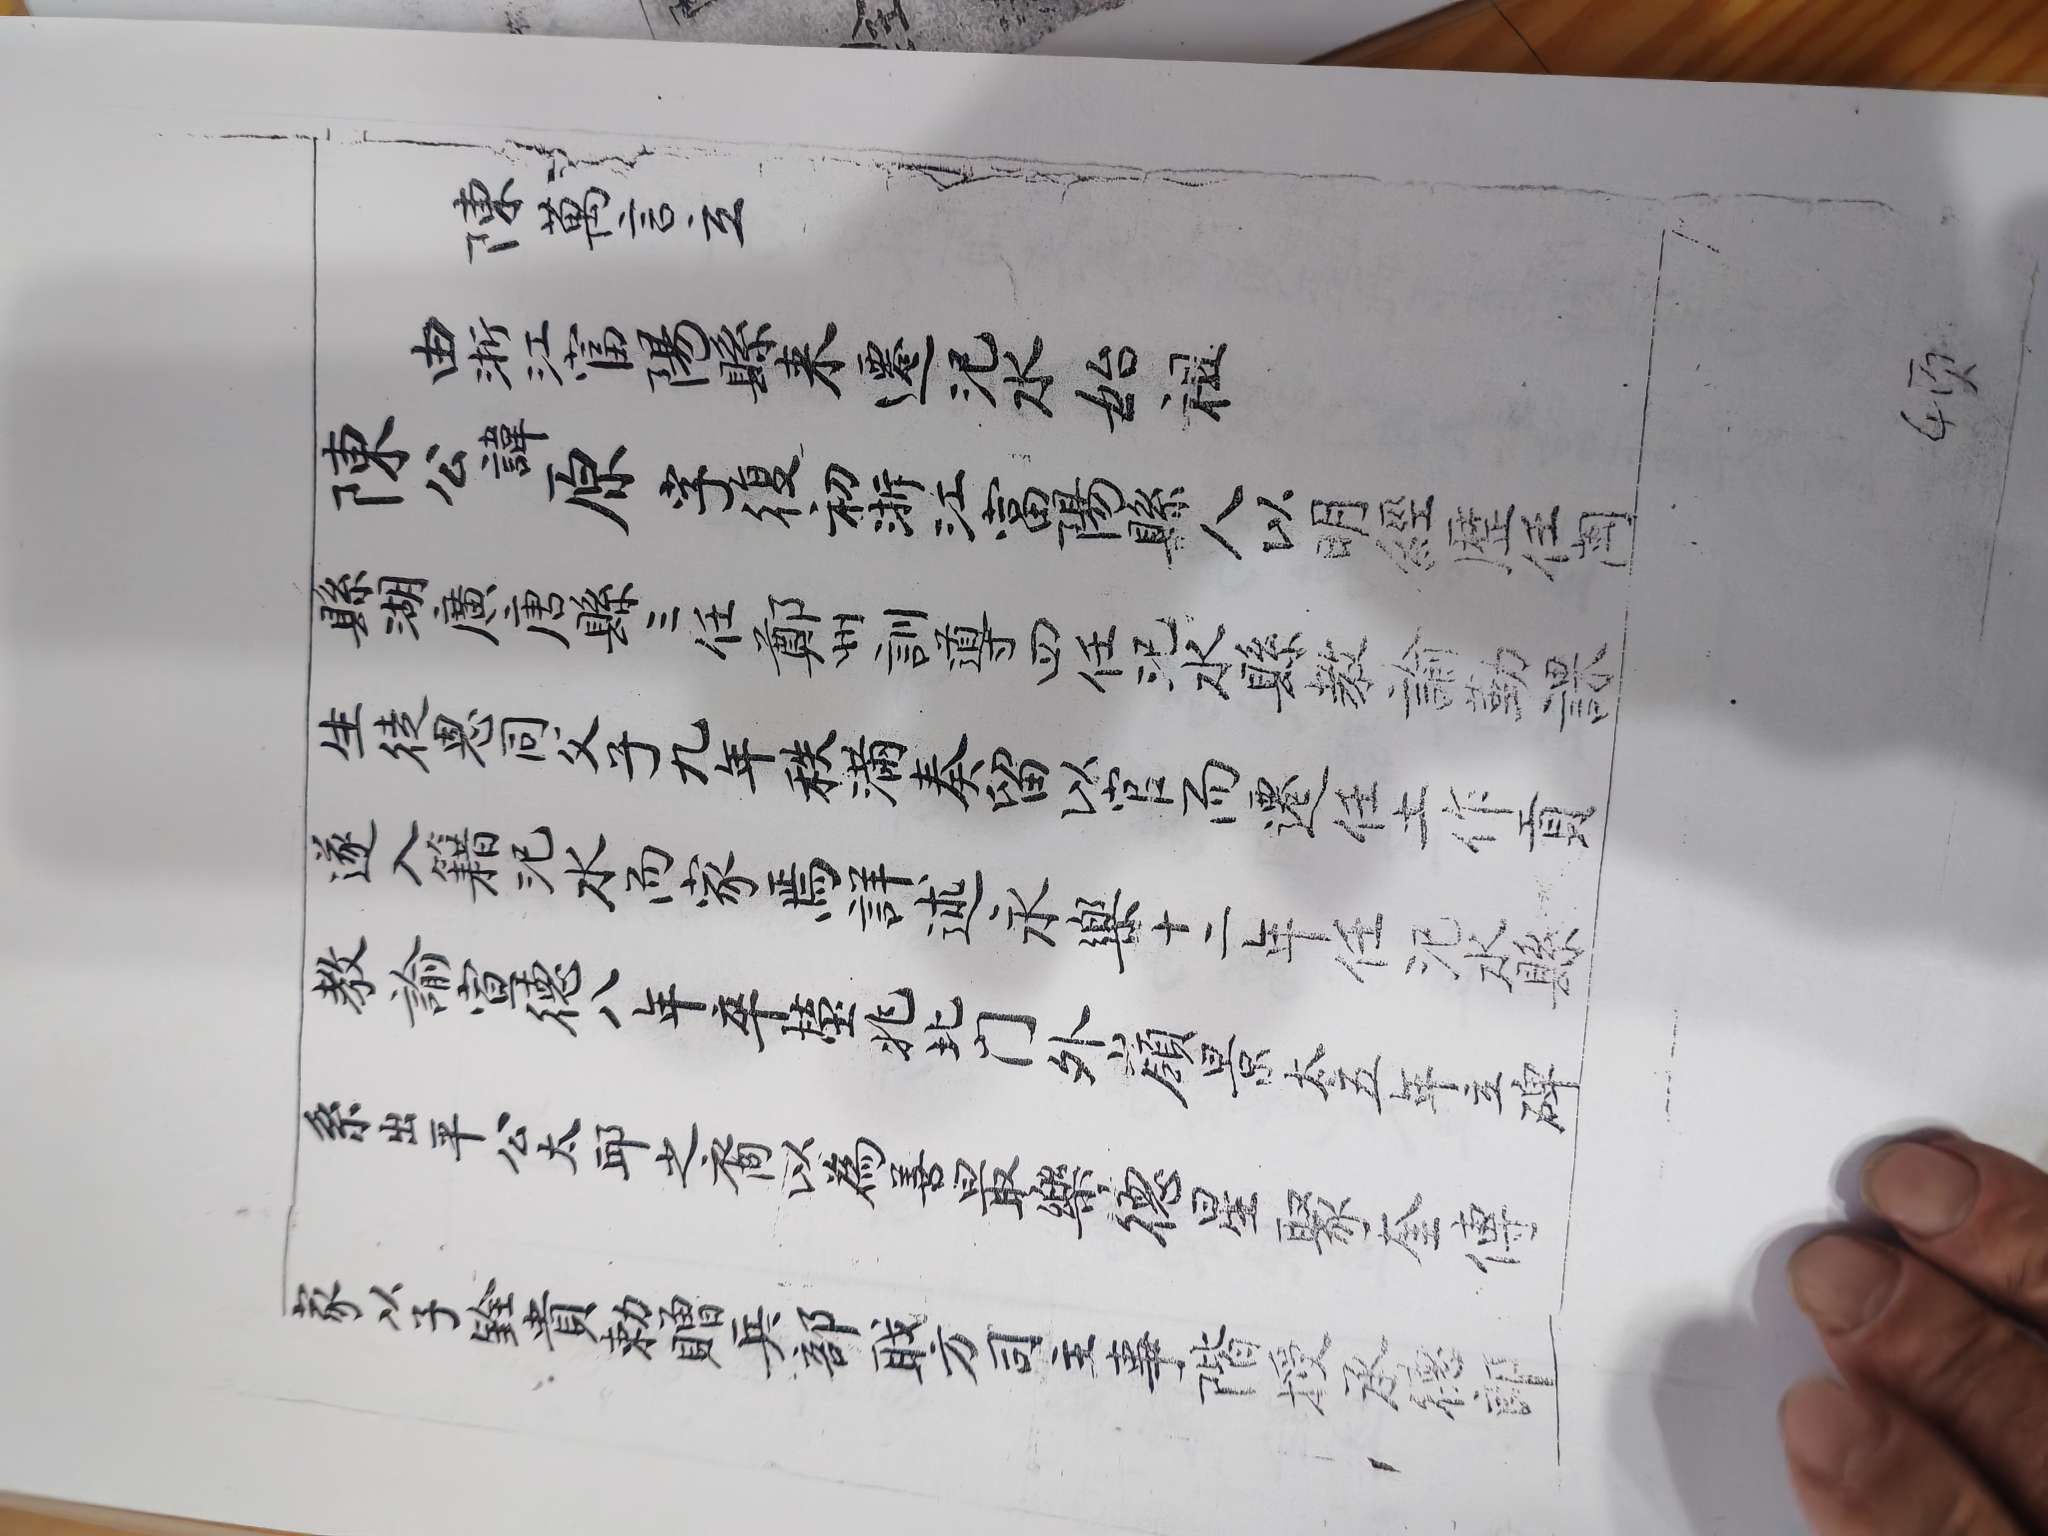 陳萬言立
由浙江富陽縣來遷汜水始祖
陳公諱原字復初浙江富陽縣人以明經歷任
縣湖廣唐縣三任鄭州訓導四任汜水縣教諭勤課
生徒恩同父子九年秩滿奏留以官而遷任土作貢
遂入籍汜水而家焉譯述永樂十二年任汜水縣
教諭宣德八年卒塟北门外嶺景太五年立碑
系出平公太邱之裔以為善最樂德星聚奎傳
家以子銓貴勅贈兵部職方司主事階授承德郎
4页